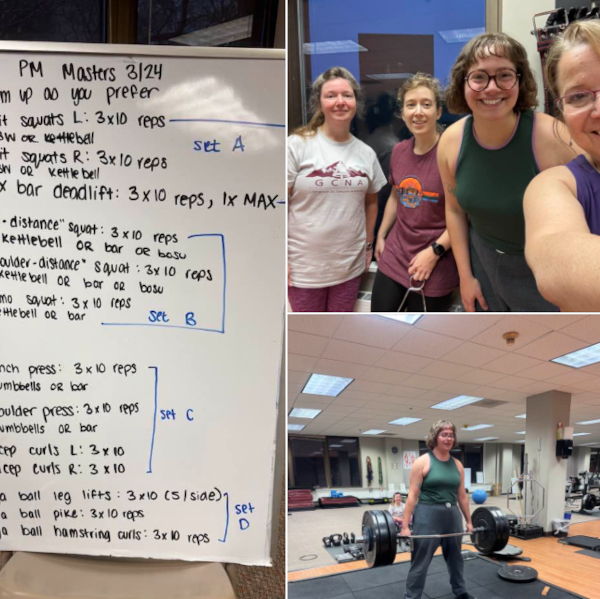 PM Masters 3/24
m up as you prefer
it squats L: 3x10 reps
BW OR kettlebell
set A
it squats R: 3x10 reps
BW OR kettlebell
x bar deadlift: 3x10 reps, 1x MAX
- distance" squat: 3x10 reps
kettlebell OR bar OR bosu
oulder-distance" squat: 3x10 reps
kettlebell OR bar OR bosu
mo squat: 3x10 reps
ttlebell OR bar
set B
nch press: 3x10 reps
umbbells OR bar
oulder press: 3x10 reps
umbbells OR bar
set C
cep curls L: 3x10
cep curls R: 3x10
a ball leg lifts: 3x10 (5/side)
a ball pike: 3x10 reps
set
D
a ball hamstring curls: 3x10 reps
GCNA